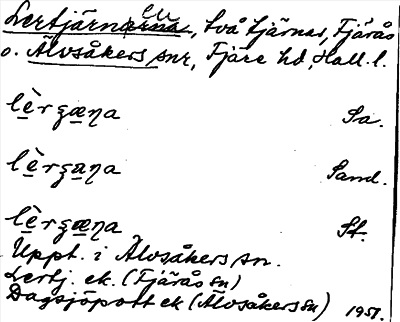 Lertjärnarna, två tjärnar, Fjärås
o. Älvsåkers snr, Fjäre hd, Hall. l.
lèrʒæna Sa.
lèrʒana Sand.
lèrʒæna St.
Uppt. i Älvsåkers sn.
Lertj. ek. (Fjärås sn)
Dagsjöpott ek (Älvsåkers sn) 1951.